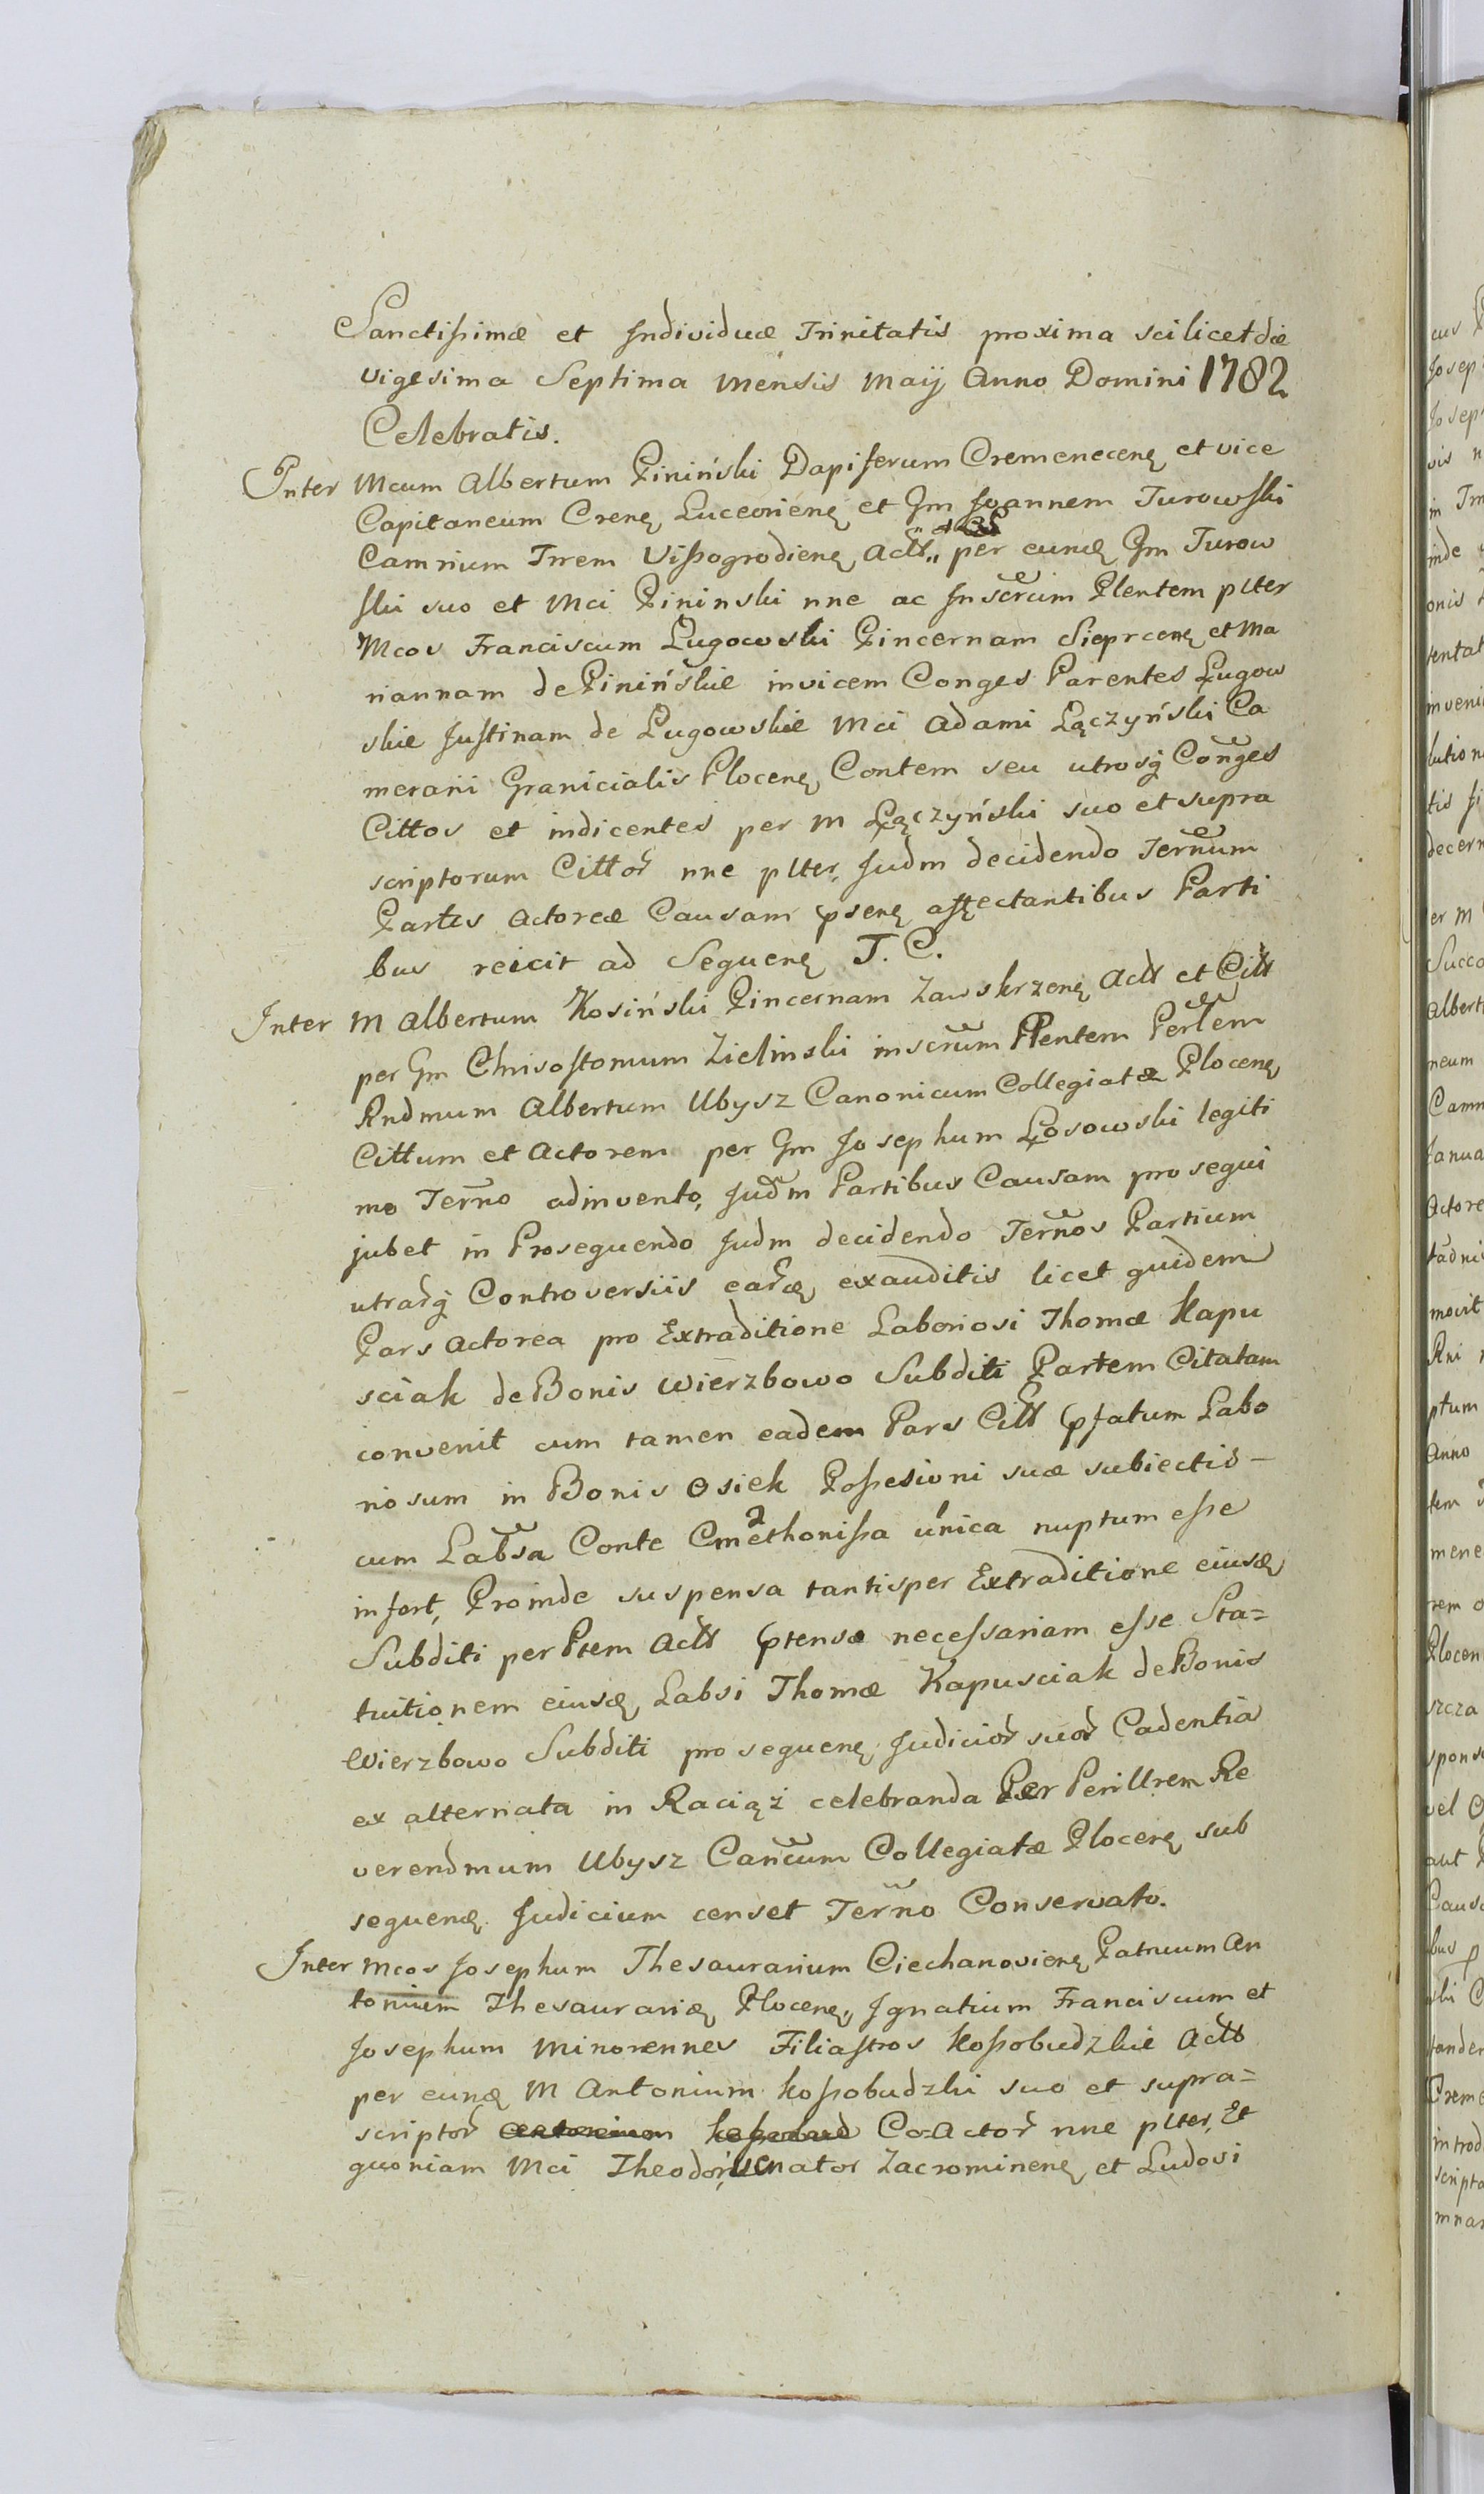 Sanctissimæ et Individuæ Trinitatis proxima scilicet die
vigesima Septima Mensis Maij Anno Domini 1782
Celebratis.
Inter Mcum Albertum Pininski Dapiferum Cremenecenę et vice
Capitaneum Crenę Luceorienę et Gm Joannem Turowski
Camrium Trrem Vissogrodienę Actt„ per eunę Gm Turow
ski suo et Mci Pininski nne ac Inscrum Plentem plter
Mcos Franciscum Ługowski Pincernam Sieprcenę et Ma
riannam de Pininskie invicem Conges Parentes Ługow
skie Justinam de Ługowskie Mci Adami Łączyński Ca
merarii Granicialis Plocenę Contem seu utrosq Conges
Cittos et indicentes per M Łączyński suo et supra
scriptorum Cittor nne plter, Judm decidendo Ternum
Partis Actoreæ Causam psenę affectantibus Parti
bus reicit ad Sequenę T. C.
Inter M Albertum Kosiński Pincernam Zawskrzenę Actt et Citt
per Gm Chrisostomum Zielinski inscrum Plentem Perlem
Rndmum Albertum Ubysz Canonicum Collegiatæ Plocenę
Cittum et Actorem per Gm Josephum Łosowski legiti
mo Terno adinvento, Judm Partibus Causam prosequi
jubet in Prosequendo Judm decidendo Ternos Partium
utrarq Controversiis earę exauditis licet quidem
Pars Actorea pro Extraditione Laboriosi Thomæ Kapu
sciak de Bonis Wierzbowo Subditi Partem Citatam
convenit cum tamen eadem Pars Citt pfatum Labo
riosum in Bonis Osiek Possesioni suæ subiectis -
cum Labsa Conte Cmethonissa unica nuptum esse
infert, Proinde suspensa tantisper Extraditione eiusę
Subditi per Ptem Actt ptensa necessariam esse Sta=
tuitionem eiusę Labsi Thomæ Kapusciak de Bonis
Wierzbowo Subditi pro sequenę Judicior suor Cadentia
ex alternata in Raciąż celebranda Per Perillrem Re
verendmum Ubysz Cancum Collegiatæ Plocenę sub
sequenę Judicium censet Terno Conservato.
Inter Mcos Josephum Thesaurarium Ciechanovienę Patruum An
tonium Thesaurarię Plocenę, Ignatium Franciscum et
Josephum Minorennes Filiastros Kossobudzkie Actt
per eunę M Antonium Kossobudzki suo et supra=
scriptor Antonium Kossobud Co-Actor nne plter, Et
quoniam Mci Theodor, Venator Zacrominenę et Ludovi